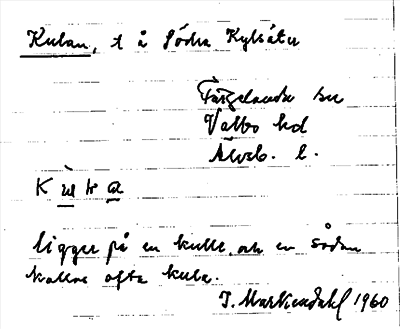 Kulan, t å Södra Kylsäter
Färgelanda sn
Valbo hd
Älvsb. l.
K ù l a
ligger på en kulle, och en sådan
kallas ofta kula.
J. Markendahl 1960